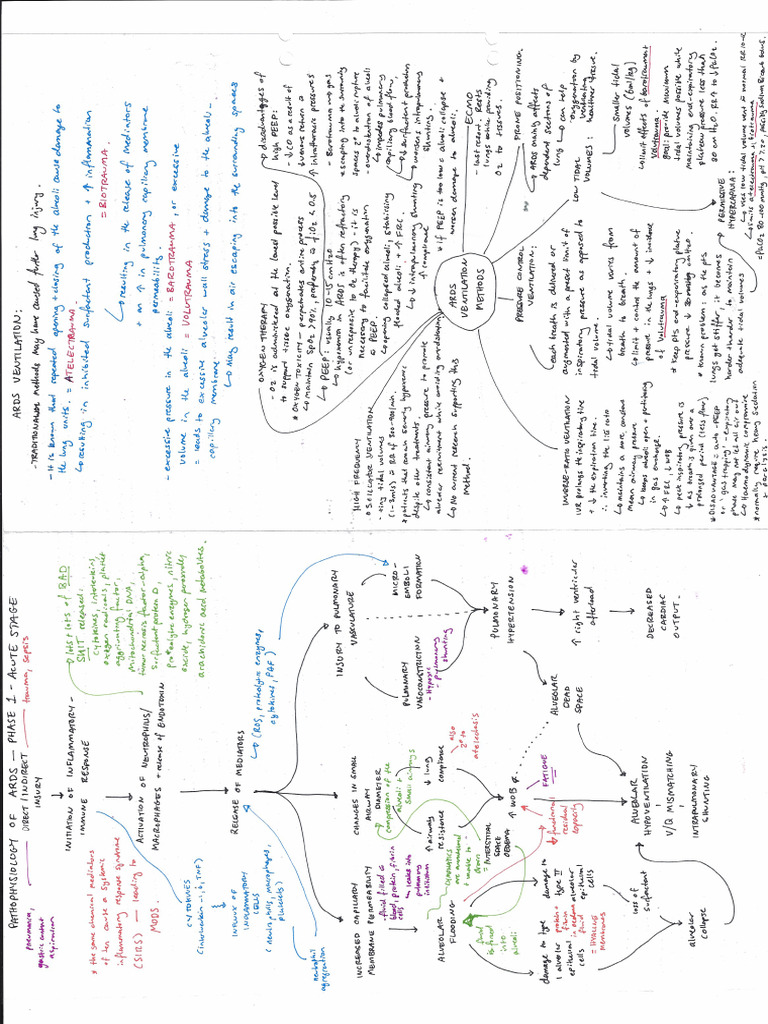 PATHOPHYSIOLOGY OF ARDS — PHASE 1 - ACUTE STAGE
pneumonia,
gastric content
aspiration
DIRECT / INDIRECT
INJURY
trauma, sepsis
INITIATION OF INFLAMMATORY-
IMMUNE RESPONSE
* the same chemical mediators
often cause a systemic
inflammatory response syndrome
(SIRS) — leading to
MODS.
lots + lots of BAD
SHIT released.
Cytokines, interleukins,
oxygen radicals, platelet
aggrivating factor,
Mitochondrial DNA,
tumor necrosis factor-alpha,
Surfactant protein D,
Proteolytic enzymes, nitric
oxide, hydrogen peroxide,
arachidonic acid metabolites.
ACTIVATION OF NEUTROPHILS/
MACROPHAGES + release OF ENDOTOXIN
CYTOKINES
(interleukin-1, 6, TNF)
INFLUX OF
INFLAMMATORY
CELLS
(neutrophils, macrophages,
platelets)
neutrophil
aggregation
RELEASE OF MEDIATORS
(ROS, proteolytic enzymes,
cytokines, PAF)
INCREASED CAPILLARY
MEMBRANE PERMEABILITY
fluid filled c
blood, protein, fibrin
cells,
leaks into
pulmonary
interstitium
CHANGES IN SMALL
AIRWAY
DIAMETER
compression of the
alveoli +
small airways
INJURY TO PULMONARY
VASCULATURE
ALVEOLAR
FLOODING
LYMPHATICS
are overwhelmed
+ unable to
drain
= INTERSTITIAL
SPACE
OEDEMA
fluid
is forced
into
alveoli
↑ airway
resistance
↓ lung
compliance
also
2° to
atelectasis
↑ WOB
FATIGUE
↓ functional
residual
capacity
PULMONARY
VASOCONSTRICTION
- Hypoxic
- pulmonary
shunting
MICRO-
EMBOLI
FORMATION
PULMONARY
HYPERTENSION
↑ right ventricular
afterload
DECREASED
CARDIAC
OUTPUT.
ALVEOLAR
DEAD
SPACE
damage to type
1 alveolar
epithelial
cells
protein +
fibrin
in oedema
fluid
= HYALINE
membranes
damage to
type II
alveolar
epithelial
cells
loss of
surfactant
alveolar
collapse
ALVEOLAR
HYPOVENTILATION
V/Q MISMATCHING
INTRAPULMONARY
SHUNTING
ARDS VENTILATION:
- TRADITIONAL methods may have caused further lung injury.
- It is known that repeated opening + closing of the alveoli cause damage to
the lung units = ATELECTRAUMA.
resulting in inhibited surfactant production + ↑ inflammation
= BIOTRAUMA.
resulting in the release of mediators
+ an ↑ in pulmonary capillary membrane
permeability.
- excessive pressure in the alveoli = BAROTRAUMA, or excessive
volume in the alveoli = VOLUTRAUMA
= leads to excessive alveolar wall stress + damage to the alveoli -
capillary membrane.
May result in air escaping into the surrounding spaces
ARDS
VENTILATION
METHODS
OXYGEN THERAPY
- O2 is administered at the lowest possible level
to support tissue oxygenation.
* OXYGEN TOXICITY - perpetuates entire process
maintain SpO2 >90%, preferably c fiO2 < 0.5
PEEP: usually 10-15 cmH2O
hypoxemia in ARDS is often refractory
(or unresponsive to O2 therapy) ∴ it is
necessary to facilitate oxygenation
c PEEP
opening collapsed alveoli, stabilising
flooded alveoli + ↑ FRC.
↓ intrapulmonary shunting
↑ compliance
disadvantages of
high PEEP:
- ↓ CO as a result of
venous return 2
↑ intrathoracic pressure
- Barotrauma 2° gas
escaping into the surrounding
spaces 2° to alveoli rupture
- overdistention of alveoli
impedes pulmonary
capillary blood flow,
↓ surfactant production
worsens intrapulmonary
shunting.
* If PEEP is too low = alveoli collapse +
worsen damage to alveoli.
HIGH FREQUENCY
OSCILLATOR VENTILATION
- tiny tidal volumes
(1-3mls) c RR of 300-420/min.
* patients that remain severely hypoxemic
despite other treatments.
consistent airway pressure to promote
alveolar recruitment while avoiding overdistension
No current research supporting this
method.
ECMO
- last resort. Rests
lungs while providing
O2 to tissues.
PRONE POSITIONING
- ARDS mainly affects
dependent sections of
lung
can help
oxygenation by
ventilating
healthier tissue.
LOW TIDAL
VOLUMES:
Smaller tidal
volumes (6ml/kg)
limit effects of barotrauma +
Volutrauma.
goal: provide maximum
tidal volumes possible while
maintaining end-inspiratory
plateau pressure less than
30 cm H2O.
PERMISSIVE
HYPERCAPNIA:
PRESSURE CONTROL
VENTILATION:
each breath is delivered or
augmented with a preset limit of
inspiratory pressure as opposed to
tidal volume.
tidal volume varies from
breath to breath.
limit + control the amount of
pressure in the lungs + ↓ incidence
of Volutrauma
* Keep pts end-inspiratory plateau
pressure ↓ 30 cmH2O.
* known problem: as the pts
lungs get stiffer, it becomes
harder + harder to maintain
adequate tidal volumes
INVERSE-RATIO VENTILATION
IVR prolongs the inspiratory time
+ ↓ the expiration time.
∴ inverting the I:E ratio
maintains a more constant
mean airway pressure
keeps alveoli open + participating
in gas exchange.
↑ FRC, ↓ WOB
peak inspiratory pressure is
↓ as breath is given over a
prolonged period (less flow)
* DISADVANTAGE = auto-PEEP
or 'gas trapping' - expiratory
phase may not let all air out)
Haemodynamic compromise
* normally require heavy sedation
+ paralysis.